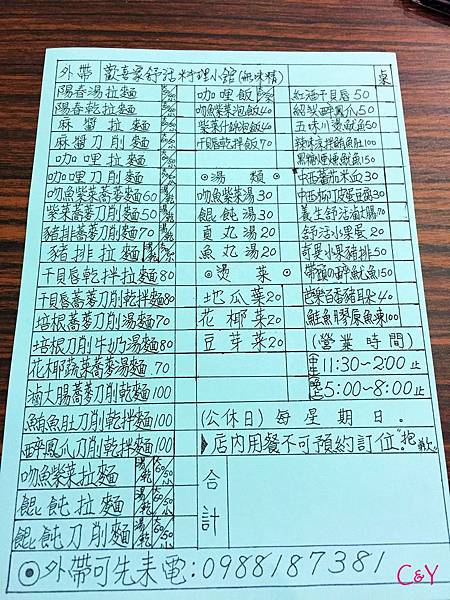 外帶 歡喜羨舒活料理小館(無味精) 桌
陽春湯拉麵
陽春乾拉麵
麻醬拉麵
麻醬刀削麵
咖哩拉麵
咖哩刀削麵
吻魚紫菜蕎麥麵60
紫菜蕎麥刀削麵50
豬排蕎麥刀削麵70
豬排拉麵
干貝唇乾拌拉麵80
干貝唇蕎麥刀削乾拌麵80
培根蕎麥刀削湯麵70
培根刀削牛奶湯麵80
花椰蔬菜蕎麥湯麵70
滷大腸蕎麥刀削乾麵100
鮪魚肚刀削乾拌麵100
醉鳳爪刀削乾拌麵100
吻魚紫菜拉麵 湯乾 大60/50小
餛飩拉麵 湯乾 大60/50小
餛飩刀削麵 湯乾 大60/50小
咖哩飯
吻魚紫菜泡飯40
紫菜什錦泡飯40
干貝唇乾拌飯70
⊙湯類⊙
吻魚紫菜湯30
餛飩湯30
貢丸湯20
魚丸湯20
⊙燙菜⊙
地瓜菜20
花椰菜20
豆芽菜20
紅油干貝唇50
紹興醉鳳爪50
五味川燙魷魚50
辣味涼拌鮪魚肚100
黑糖煙燻魷魚150
中西蕃茄米血30
中西椰皮蛋豆腐30
養生舒活滷大腸70
舒活水果蛋20
奇異水果豬排50
帶殼醉魷魚150
芭樂百香豬耳朵40
鮭魚膠原魚凍100
(營業時間)
中午11:30~2:00止
晚上5:00~8:00止
(公休日)每星期日。
▶店內用餐不可預約訂位"抱歉"。
合計
⊙外帶可先來電:0988187381
C&Y